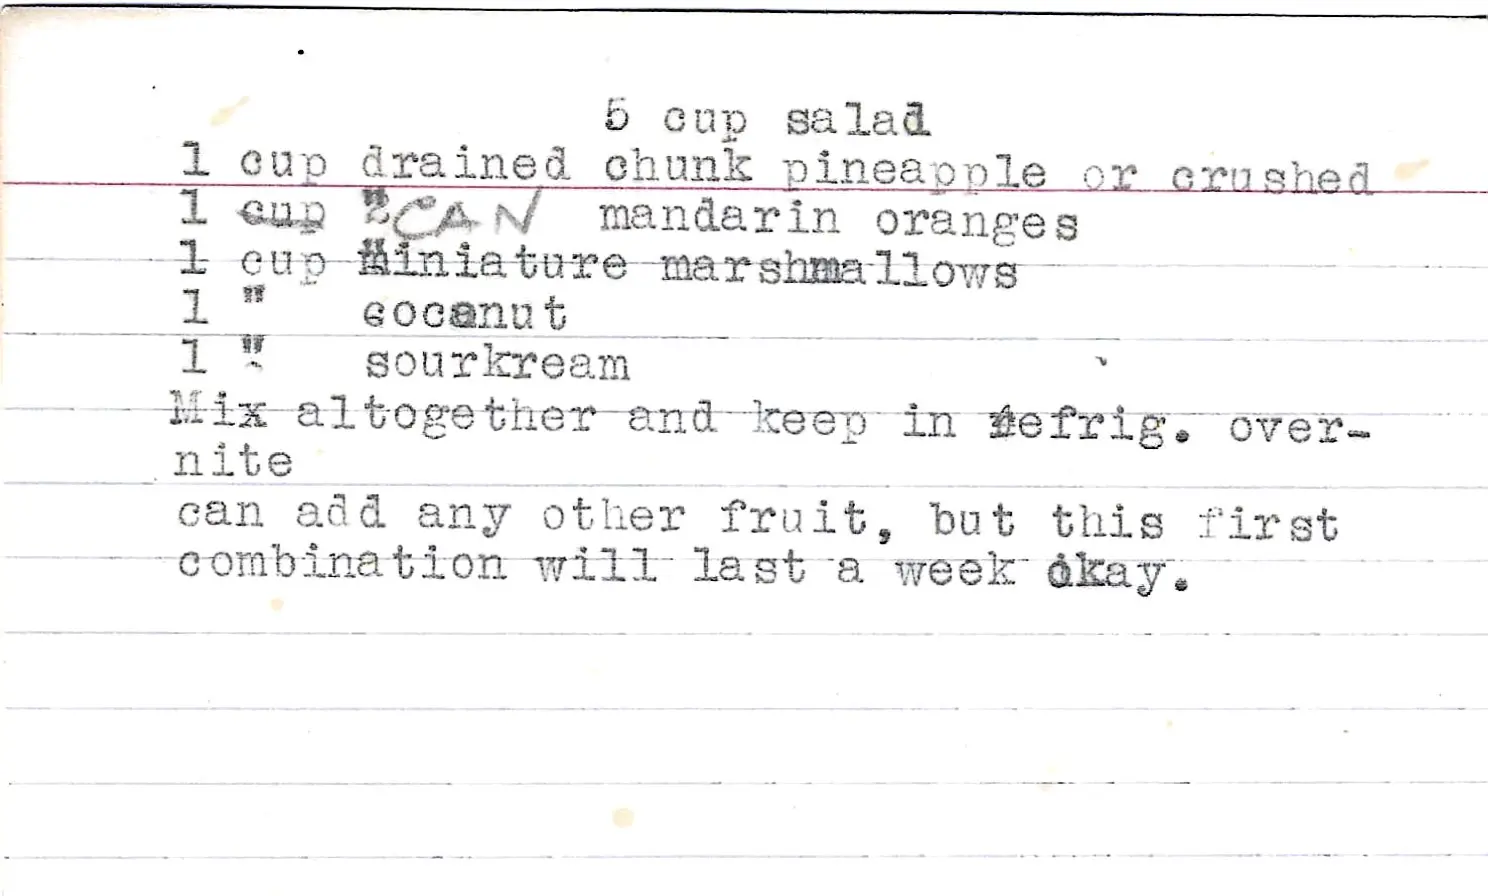 5 cup salad
1 cup drained chunk pineapple or crushed
1 cup " CAN mandarin oranges
1 cup miniature marshmallows
1 " coconut
1 " sourkream
Mix altogether and keep in refrig. over-
nite
can add any other fruit, but this first
combination will last a week okay.